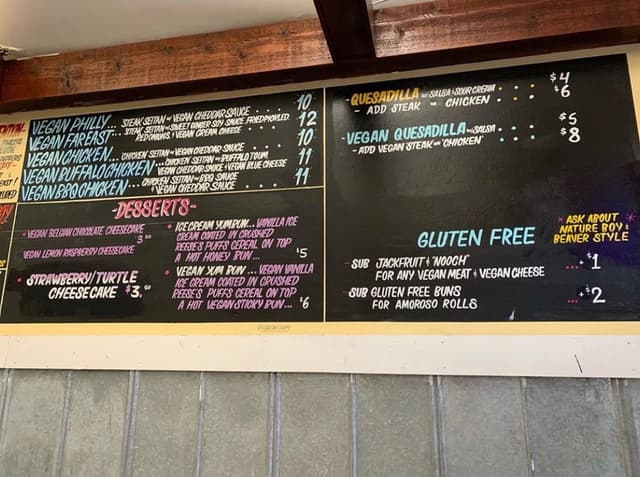 VEGAN PHILLY... STEAK SEITAN W/ VEGAN CHEDDAR SAUCE 10
VEGAN FAR EAST... STEAK SEITAN W/ SWEET GINGER SOY SAUCE, FRIED PICKLED 12
RED ONIONS & VEGAN CREAM CHEESE
VEGAN CHICKEN... CHICKEN SEITAN W/ VEGAN CHEDDAR SAUCE 10
VEGAN BUFFALO CHICKEN... CHICKEN SEITAN W/ BUFFALO 11
VEGAN CHEDDAR SAUCE & VEGAN BLUE CHEESE
VEGAN BBQ CHICKEN... CHICKEN SEITAN W/ BBQ SAUCE 11
& VEGAN CHEDDAR SAUCE
-DESSERTS-
VEGAN BELGIAN CHOCOLATE CHEESECAKE
3.50
VEGAN LEMON RASPBERRY CHEESECAKE
STRAWBERRY/TURTLE
CHEESECAKE $3.50
ICE CREAM YUM BUN... VANILLA ICE
CREAM COATED IN CRUSHED
REESE'S PUFFS CEREAL ON TOP
A HOT HONEY BUN... $5
VEGAN YUM BUN... VEGAN VANILLA
ICE CREAM COATED IN CRUSHED
REESE'S PUFFS CEREAL ON TOP
A HOT VEGAN STICKY BUN... $6
-QUESADILLA W/ SALSA & SOUR CREAM $4
- ADD STEAK OR CHICKEN $6
-VEGAN QUESADILLA W/ SALSA $5
- ADD VEGAN STEAK OR "CHICKEN" $8
GLUTEN FREE
* ASK ABOUT *
NATURE BOY &
BEAVER STYLE
-SUB JACKFRUIT & "NOOCH"
FOR ANY VEGAN MEAT & VEGAN CHEESE ...+$1
-SUB GLUTEN FREE BUNS
FOR AMOROSO ROLLS ...+$2